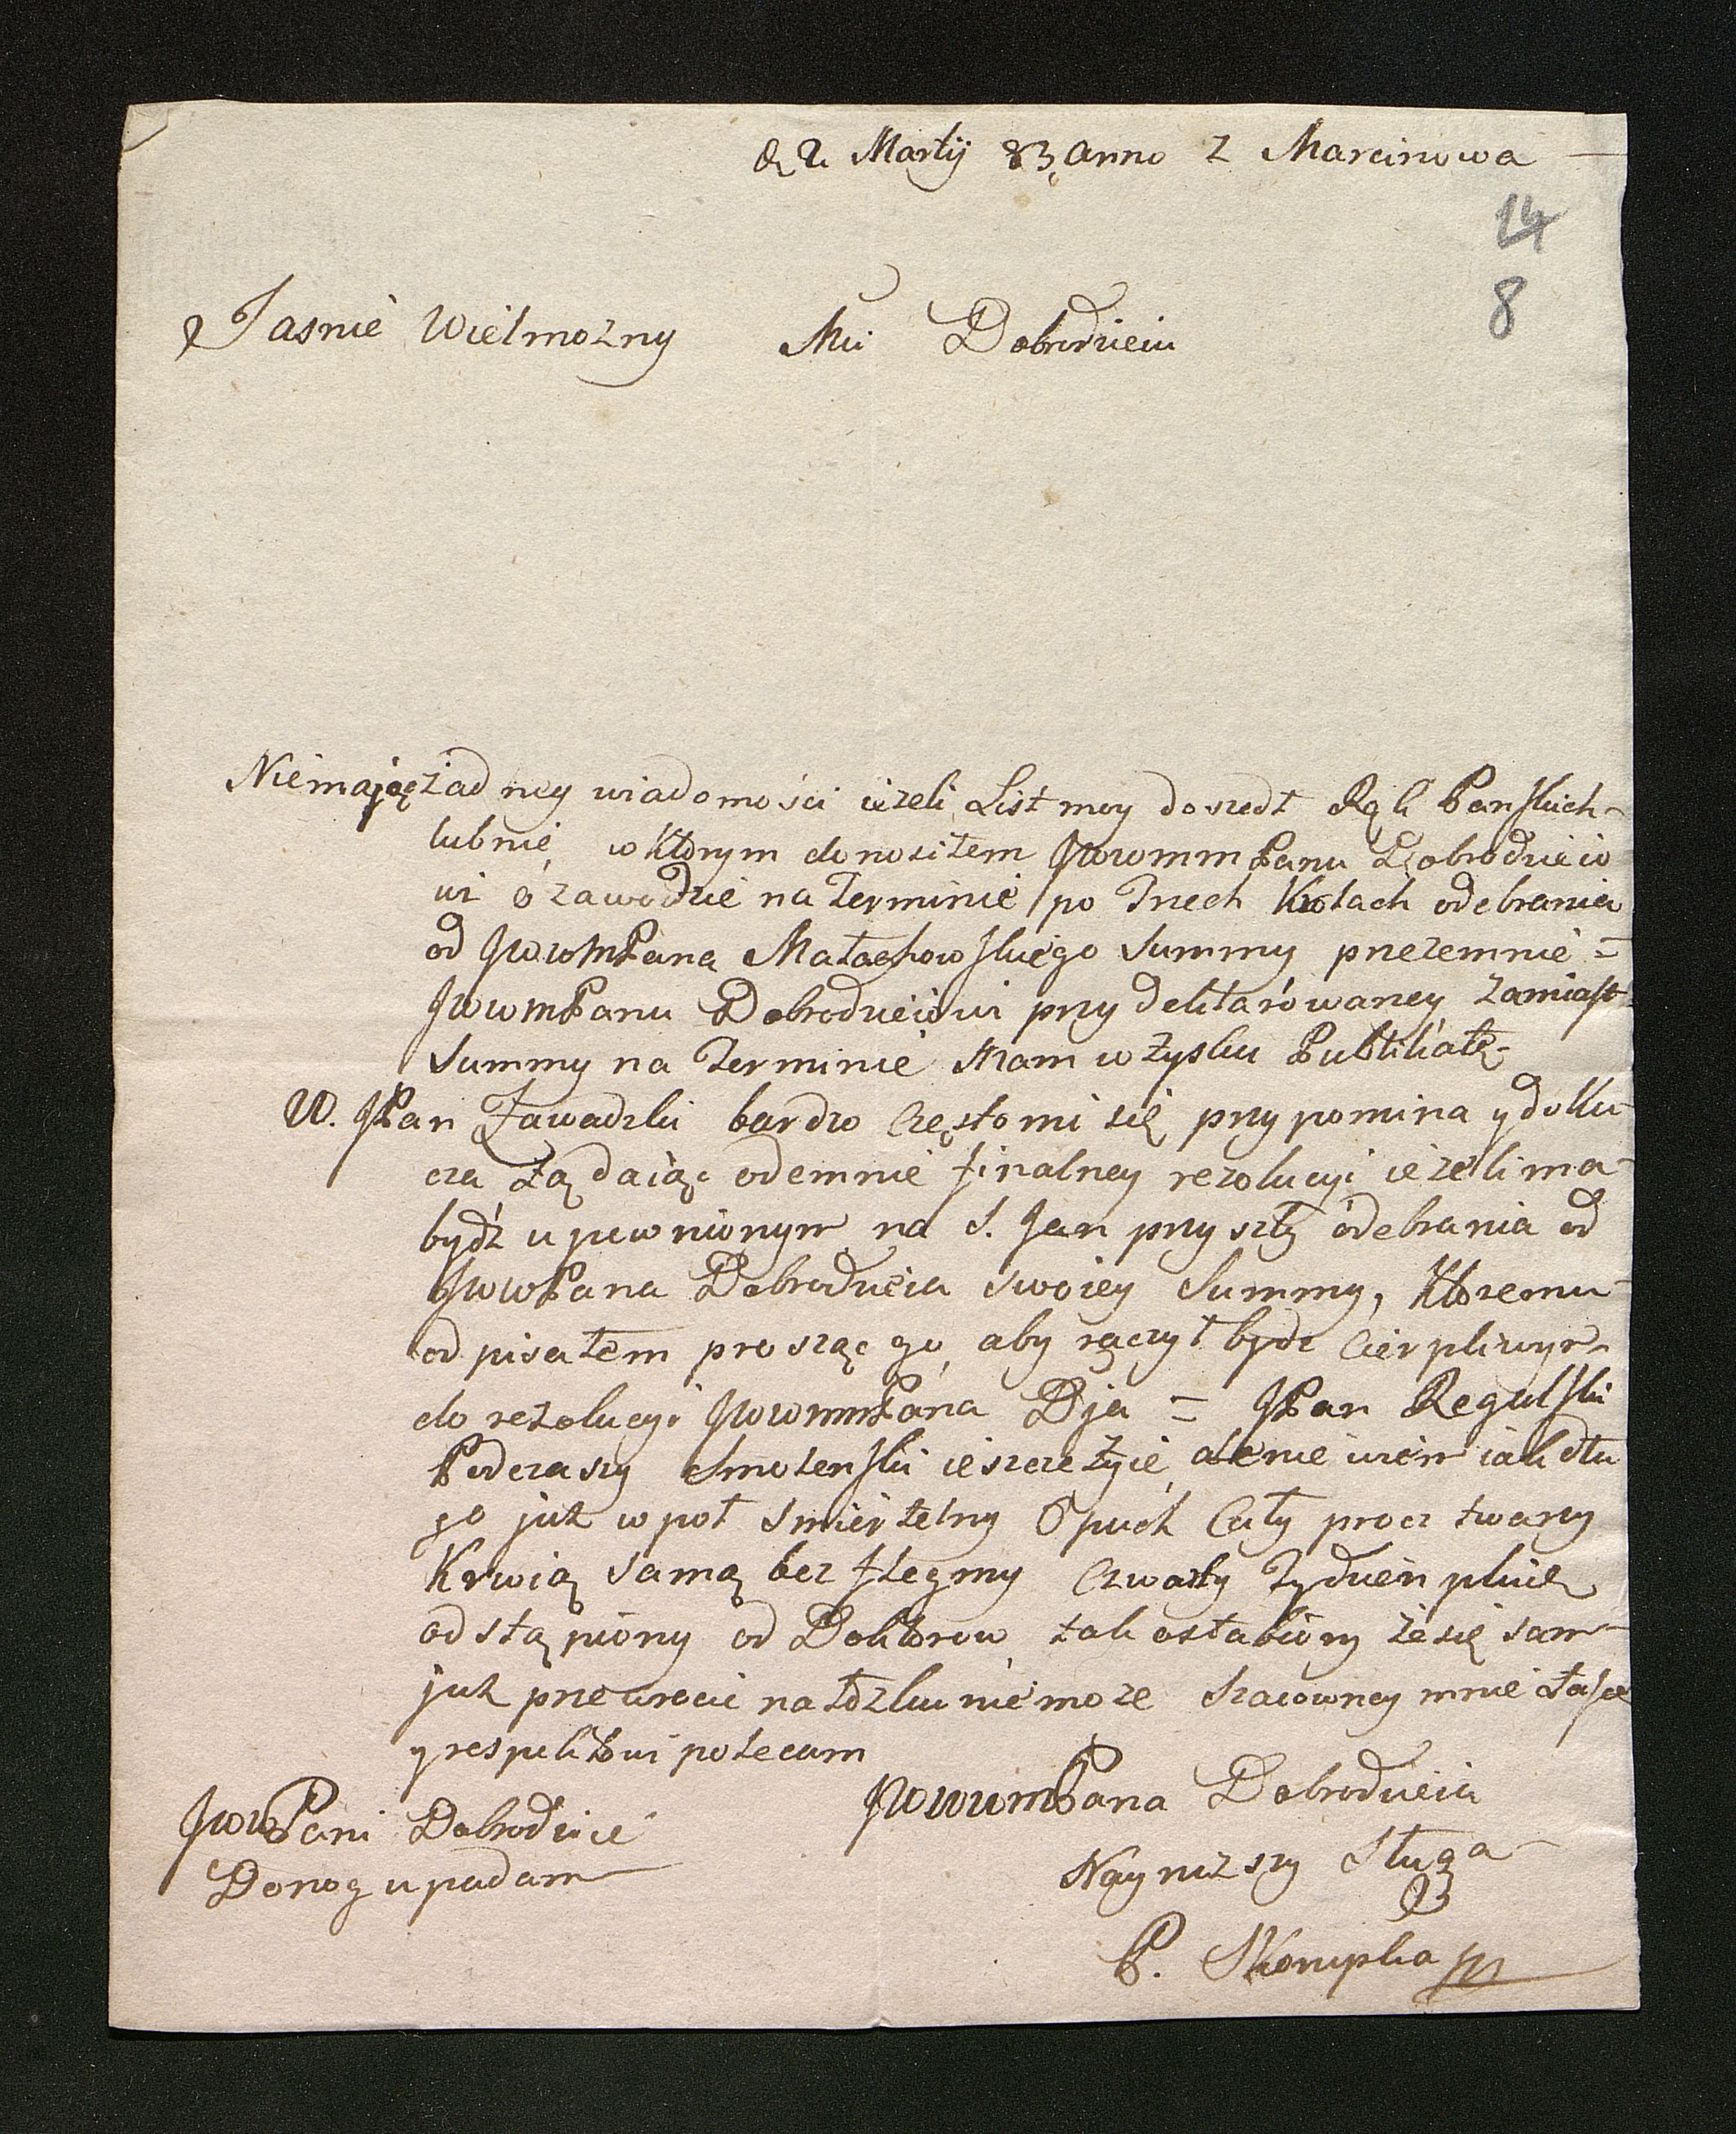 d. 2 Martij 83 Anno z Marcinowa
14
8
Jasnie Wielmozny Mci Dobrodzieiu
Niemaiąc żadney wiadomości ieżeli List moy doszedł Rąk Pańskich
lub nie, w ktorym donosiłem JWWMMPanu Dobrodzieio
wi o zawodzie na Terminie po Trzech Krolach odebrania
od JWWMPana Małachowskiego Summy przezemnie =
JWWMPanu Dobrodzieiowi przydeklarowaney, zamiast
Summy na Terminie Mam w zysku Publikatę.
W. JPan Zawadzki bardzo często mi się przypomina y doku
cza żądaiąc odemnie finalney rezolucyi ieżeli ma
bydź upewnionym na S. Jan przyszły odebrania od
JWWPana Dobrodzieia swoiey Summy, Ktoremu
odpisałem prosząc go, aby raczył bydz Cierpliwym
do rezolucyi JWWMMPana Dja = JPan Regulski
Podczaszy Smolenski ieszcze żyie, ale nie wiem iak dłu
go już wpoł Smiertelny Opuch Cały procz twarzy
Krwią samą bez flegmy Czwarty Tydzień pluie,
odstąpiony od Doktorow tak osłabiony że się sam
już przewrocic na łozku nie moze Szacowney mnie Łasce
y respektowi polecam
JWWPani Dobrodzice
Do nog upadam
JWWWMPana Dobrodzieia
Nayniższy Sługa
P. Skorupka mp